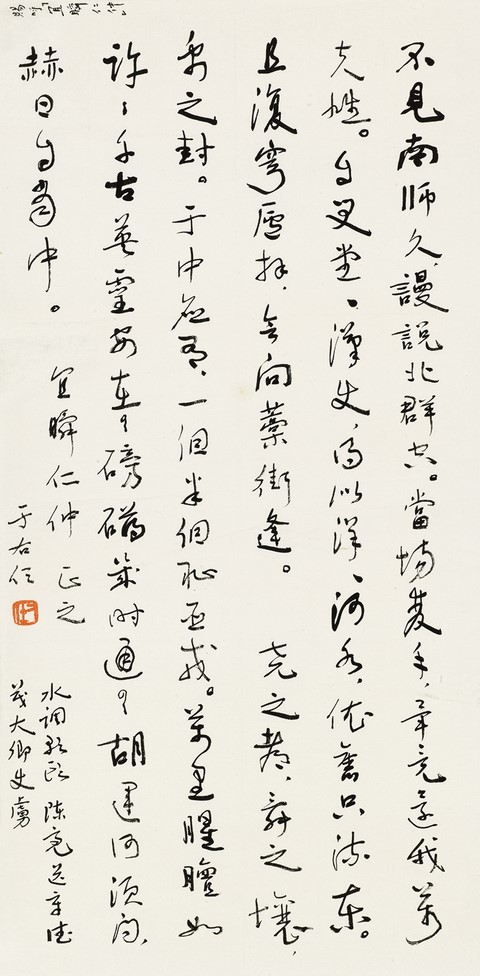 不見南師久、謾說北群空。當場隻手、畢竟還我萬
夫雄。自笑堂〻漢使、得似洋〻河水、依舊只流東。
且復穹廬拜、會向藁街逢。堯之都、舜之壤、
禹之封。于中應有、一個半個恥臣戎。萬里腥膻如
許、千古英靈安在、磅礴幾時通、胡運何須問、
赫日自當中。
宜瞬仁仲 正之
于右任
水調歌頭 陳亮送章德
茂大卿使虜